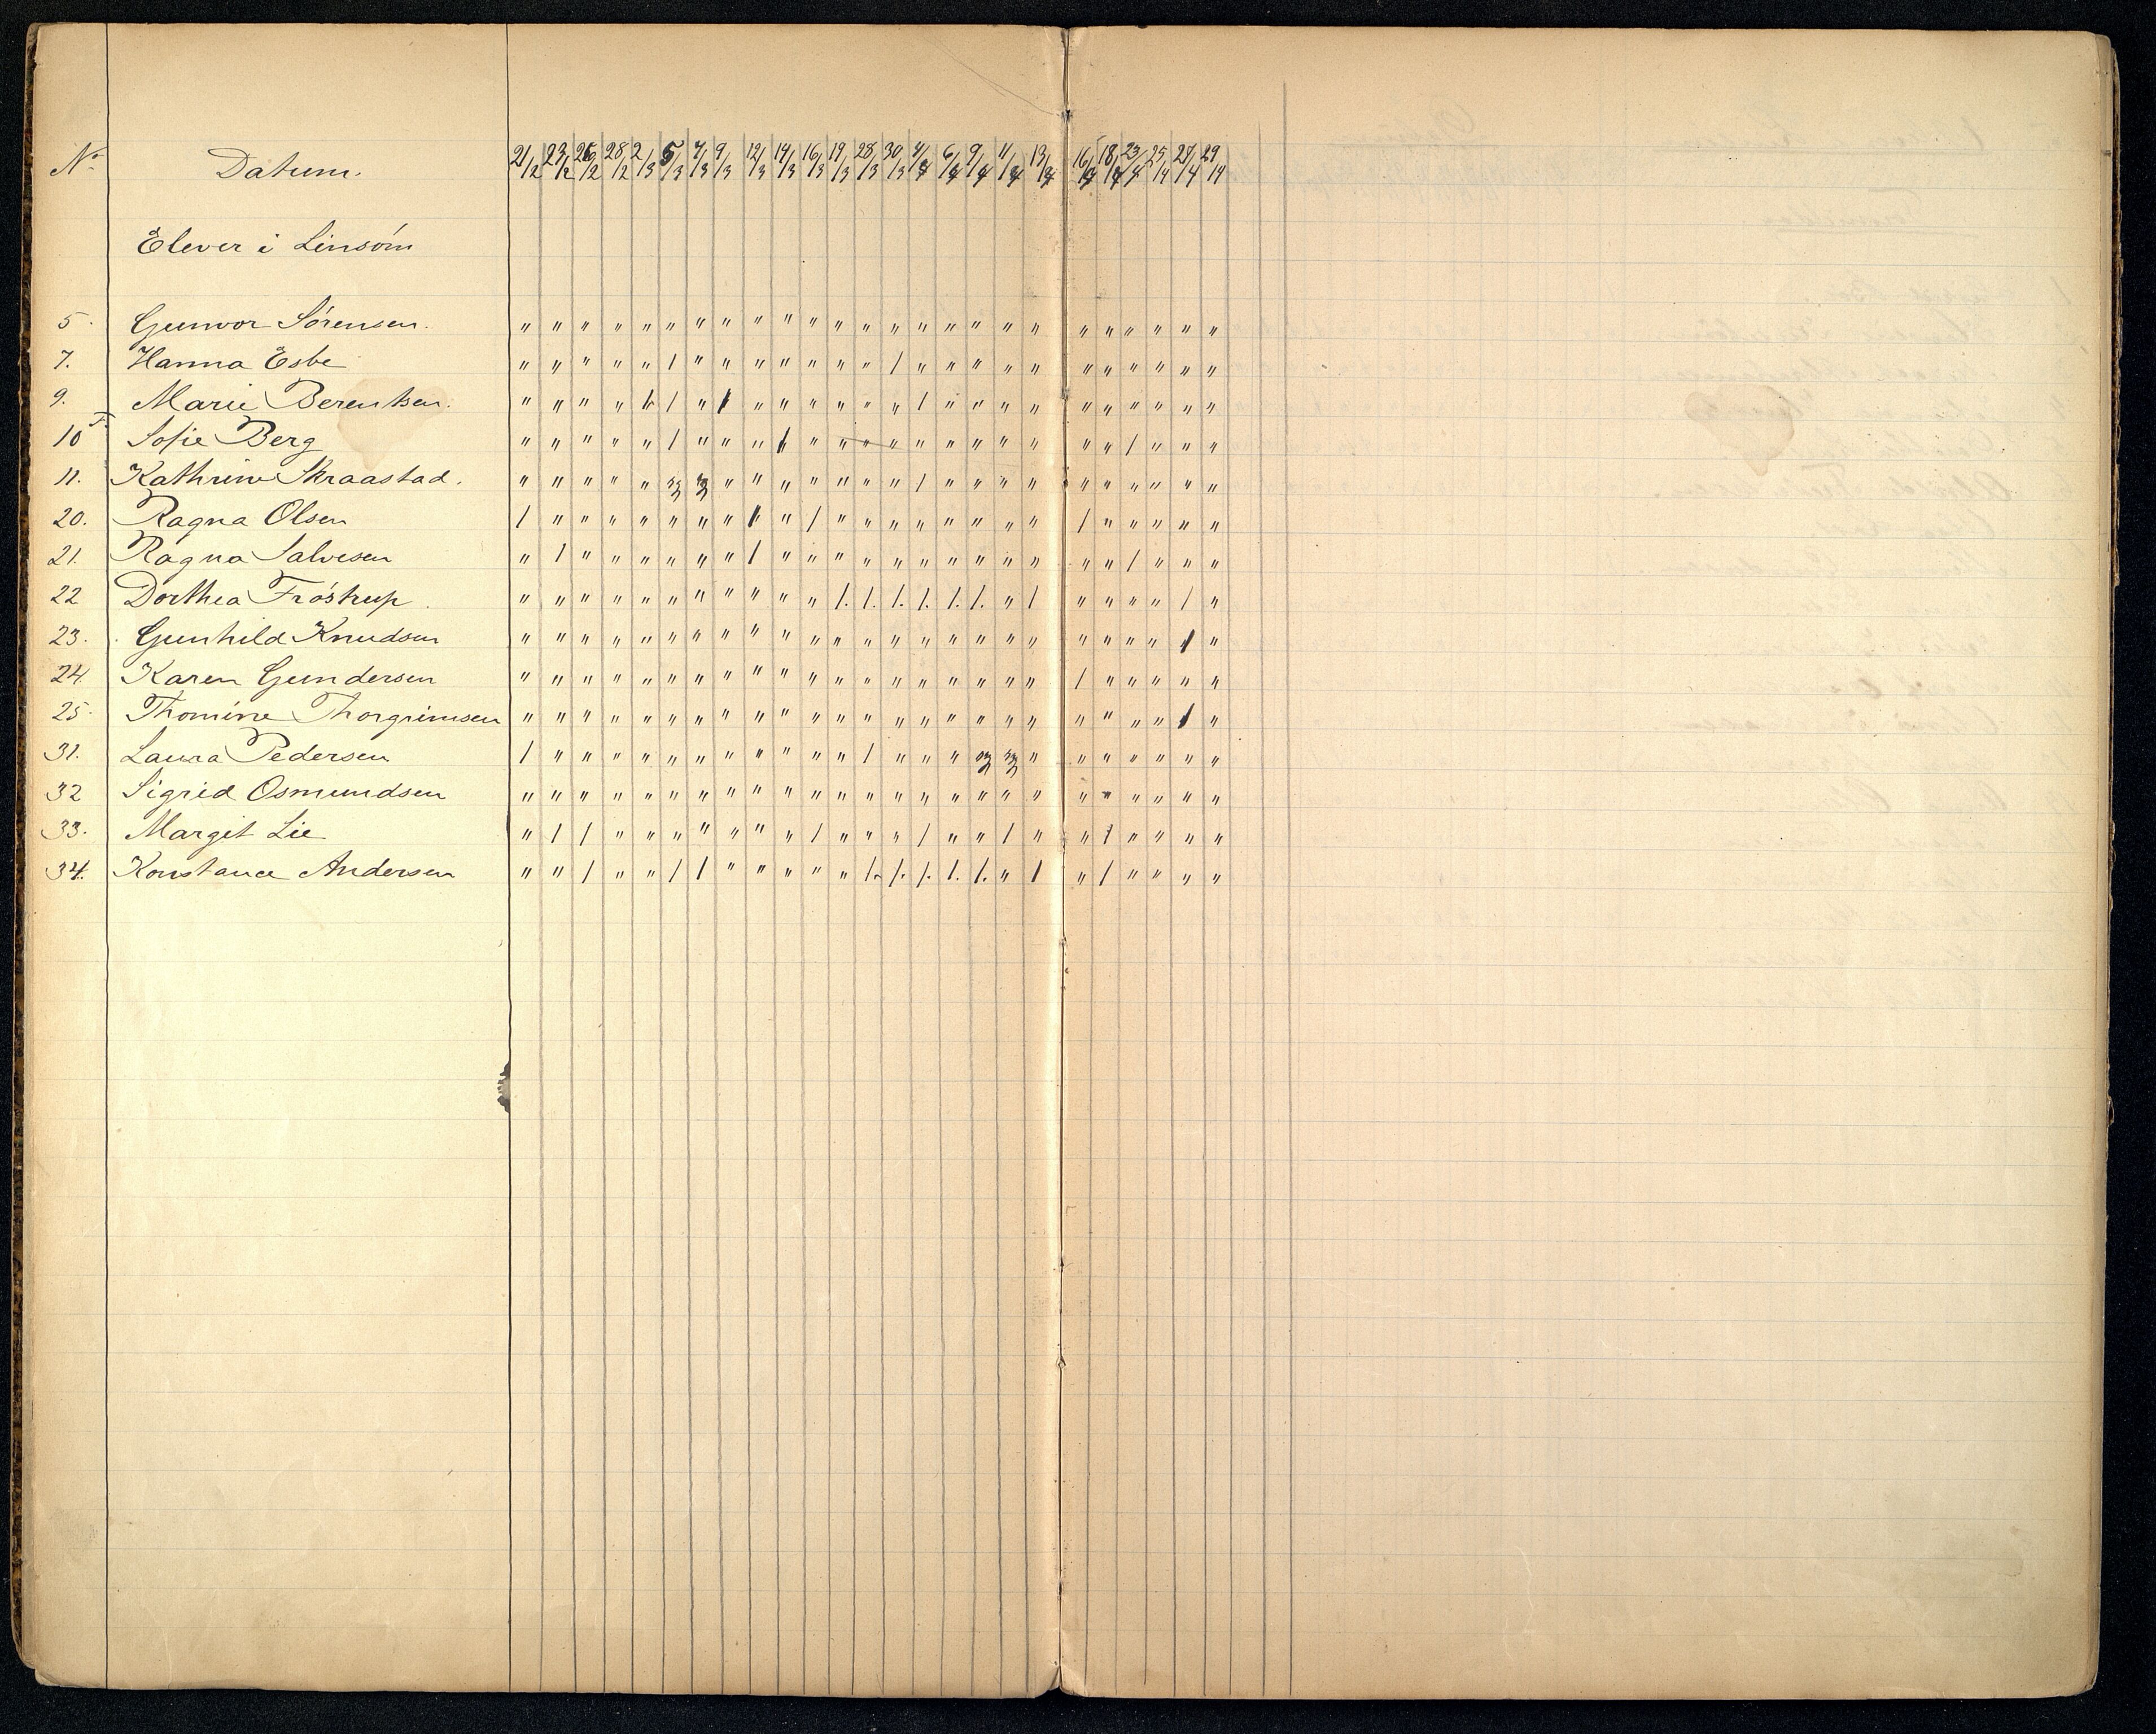 No. Datum. 21/2 23/2 26/2 28/2 2/3 5/3 7/3 9/3 12/3 14/3 16/3 19/3 28/3 30/3 4/4 6/4 9/4 11/4 13/4 16/4 18/4 23/4 25/4 27/4 29/4
Elever i Linsöm
5. Gunvor Sörensen. " " " " " " " " " " " " " " " " " " " " " " " " "
7. Hanna Esbe " " " " " / " " " " " " " / " " " " " " " " " " "
9. Marie Berentsen. " " " " / / " / " " " " " " / " " " " " " " " " "
10 F. Sofie Berg " " " " " / " " " / " " " " " " " " " " " / " " "
11. Kathrine Skraastad. " " " " " " " " " " " " / " " " " " " " " " "
20. Ragna Olsen / " " " " " " " / " / " " " " " " " " / " " " " "
21. Ragna Salvesen " / " " " " " " / " " " " " " " " " " " " / " " "
22 Dorthea Fröstrup. " " " " " " " " " " " /. /. /. /. /. /. " / " " " " / "
23. Gunhild Knudsen " " " " " " " " " " " " " " " " " " " " " " " / "
24. Karen Gundersen " " " " " " " " " " " " " " " " " " " / " " " " "
25. Thomine Thorgrimsen " " " " " " " " " " " " " " " " " " " " " " " / "
31. Laura Pedersen / " " " " " " " " " " " / " " " " " " " " " "
32 Sigrid Osmundsen " " " " " " " " " " " " " " " " " " " " " " " " "
33. Margit Lie " / / " " " " " " " / " " " / " " / " " / " " " "
34. Konstance Andersen " " / " " / / " " " " " /. /. /. /. /. " / " / " " " "